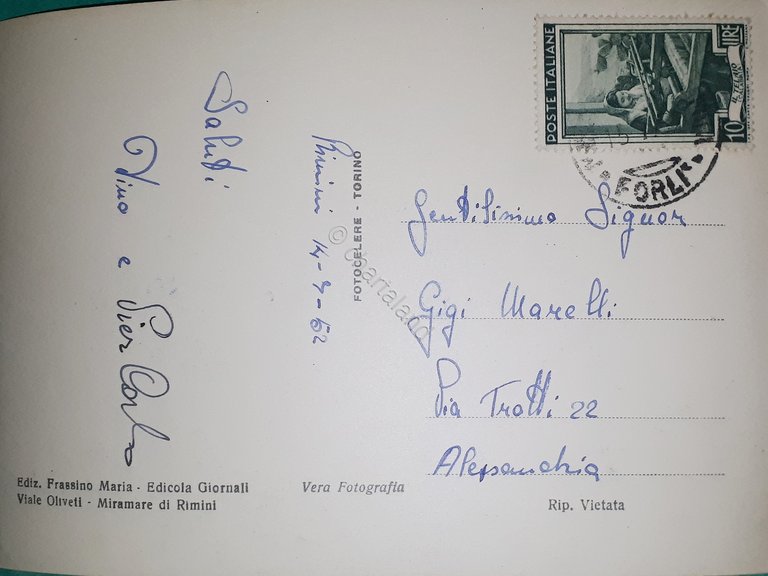 Saluti
Vino e Pier Carlo
Rimini 14-9-52
FOTOCELERE - TORINO
© chartaland
POSTE ITALIANE
LIRE
10
FORLI
Gentilissimo Signor
Gigi Marelli
Via Trotti 22
Alessandria
Ediz. Frassino Maria - Edicola Giornali
Viale Oliveti - Miramare di Rimini
Vera Fotografia
Rip. Vietata